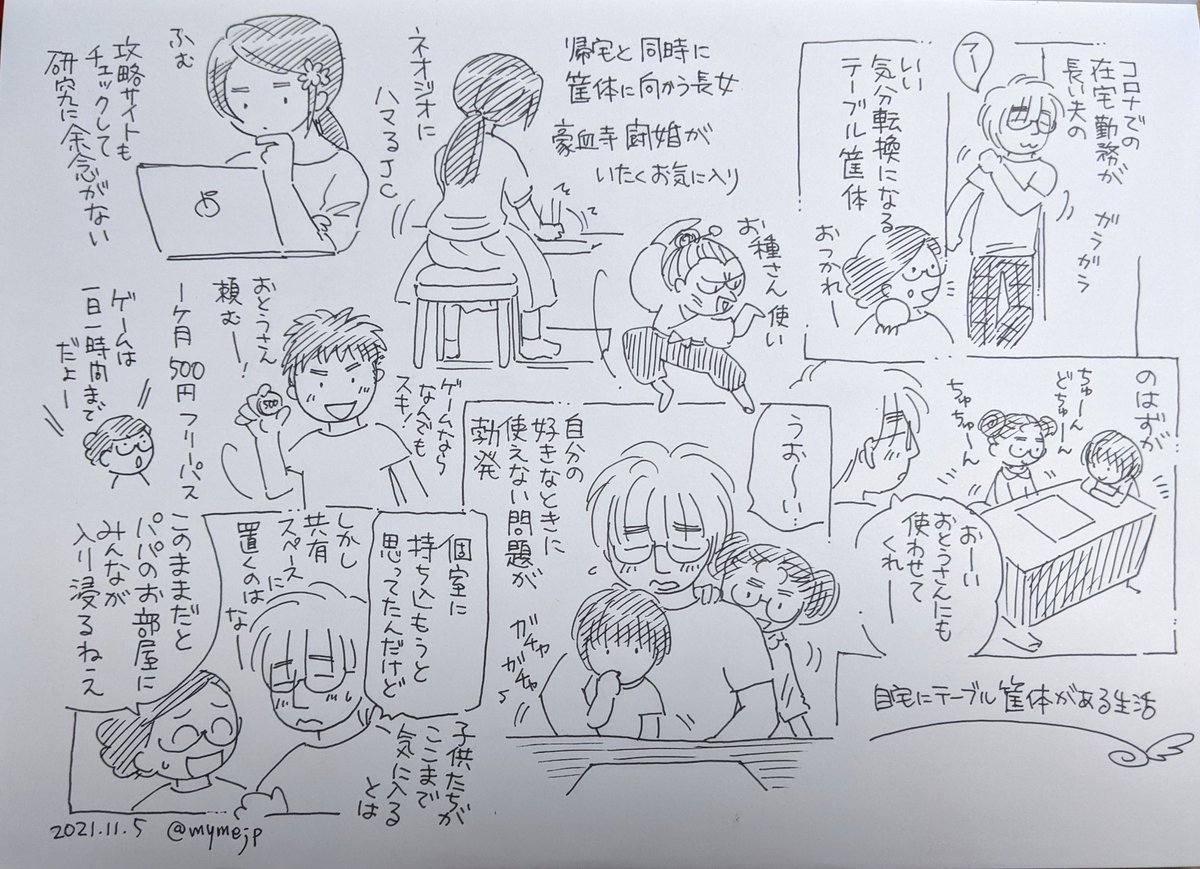 コロナでの
在宅勤務が
長い夫の
がうがう
アー
いい
気分転換になる
テーブル筐体
おつかれー
のはずが
ちゅーん
どちゅーん
ちゅちゅーん
おーい
おとうさんにも
使わせて
くれー
自宅にテーブル筐体がある生活
帰宅と同時に
筐体に向かう長女
豪血寺闘婚が
いたくお気に入り
お種さん使い
ネオジオに
ハマるJC
ふむ
攻略サイトも
チェックして
研究に余念がない
ゲームなら
なんでも
スキ!
500
おとうさん
頼むー!
一ヶ月500円フリーパス
ゲームは
一日一時間まで
だよー
うおーい
自分の
好きなときに
使えない問題が
勃発
ガチャ
ガチャ
個室に
持ち込もうと
思ってたんだけど
子供たちが
ここまで
気に入る
とは
しかし
共有
スペースに
置くのは
な
このままだと
パパのお部屋に
みんなが
入り浸るねえ
2021.11.5 @mymejp